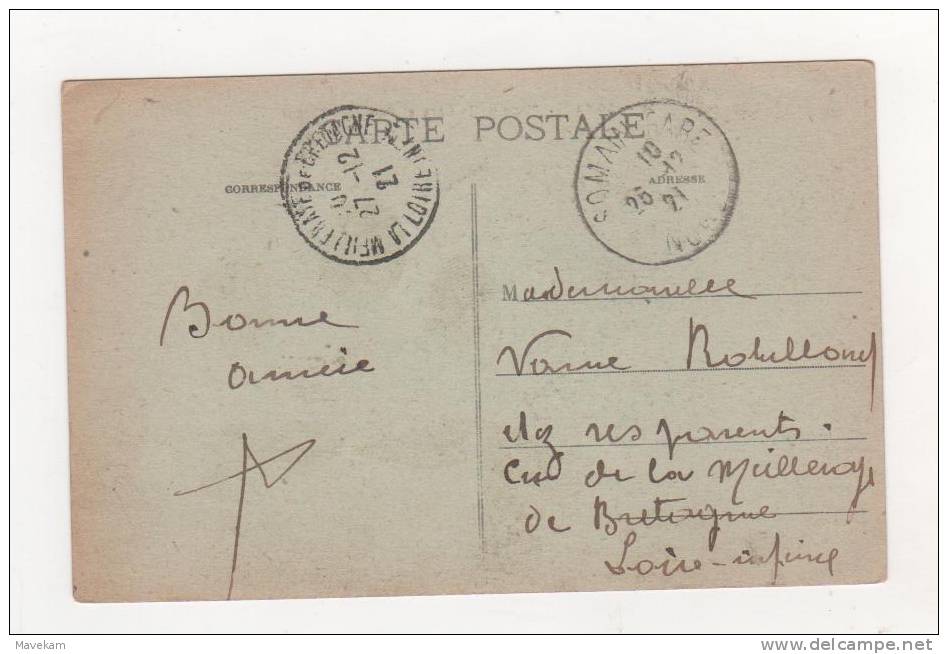 CARTE POSTALE
CORRESPONDANCE
ADRESSE
LA MEILLERAYE DE BRETAGNE LOIRE INFRE
27 -12
21
SOMAIN GARE
10
25 12
21
NORD
Bonne
année
Mademoiselle
chez ses parents.
de la Meilleraye
de Bretagne
Loire-infre
Mavekam
www.delcampe.net